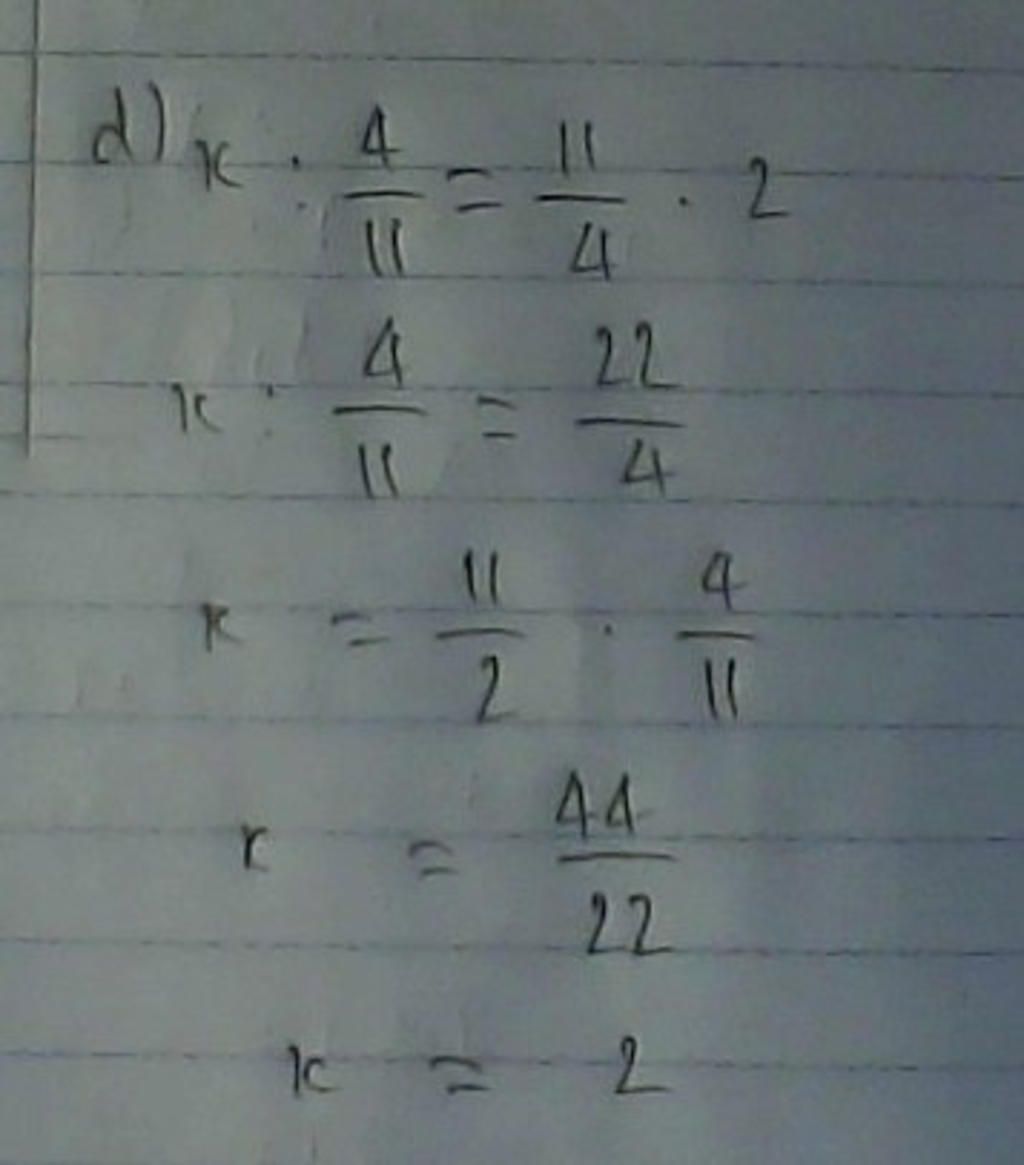 d) x : 4/11 = 11/4 . 2
x : 4/11 = 22/4
x = 11/2 . 4/11
x = 44/22
x = 2